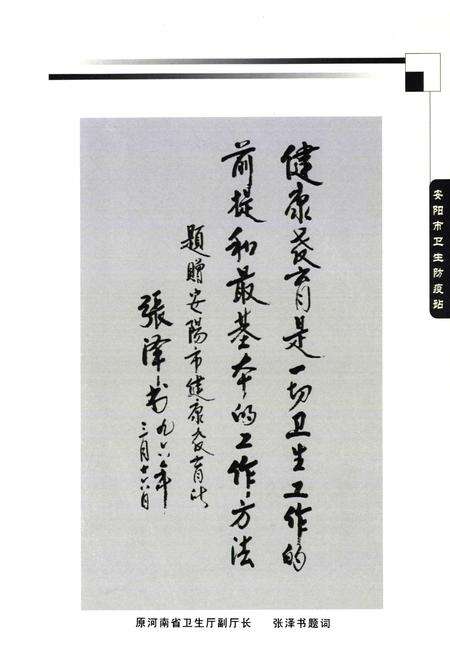 健康教育是一切卫生工作的
前提和最基本的工作方法
题赠安陽市健康教育所
張泽书九六年
三月十六日
安阳市卫生防疫站
原河南省卫生厅副厅长 张泽书题词